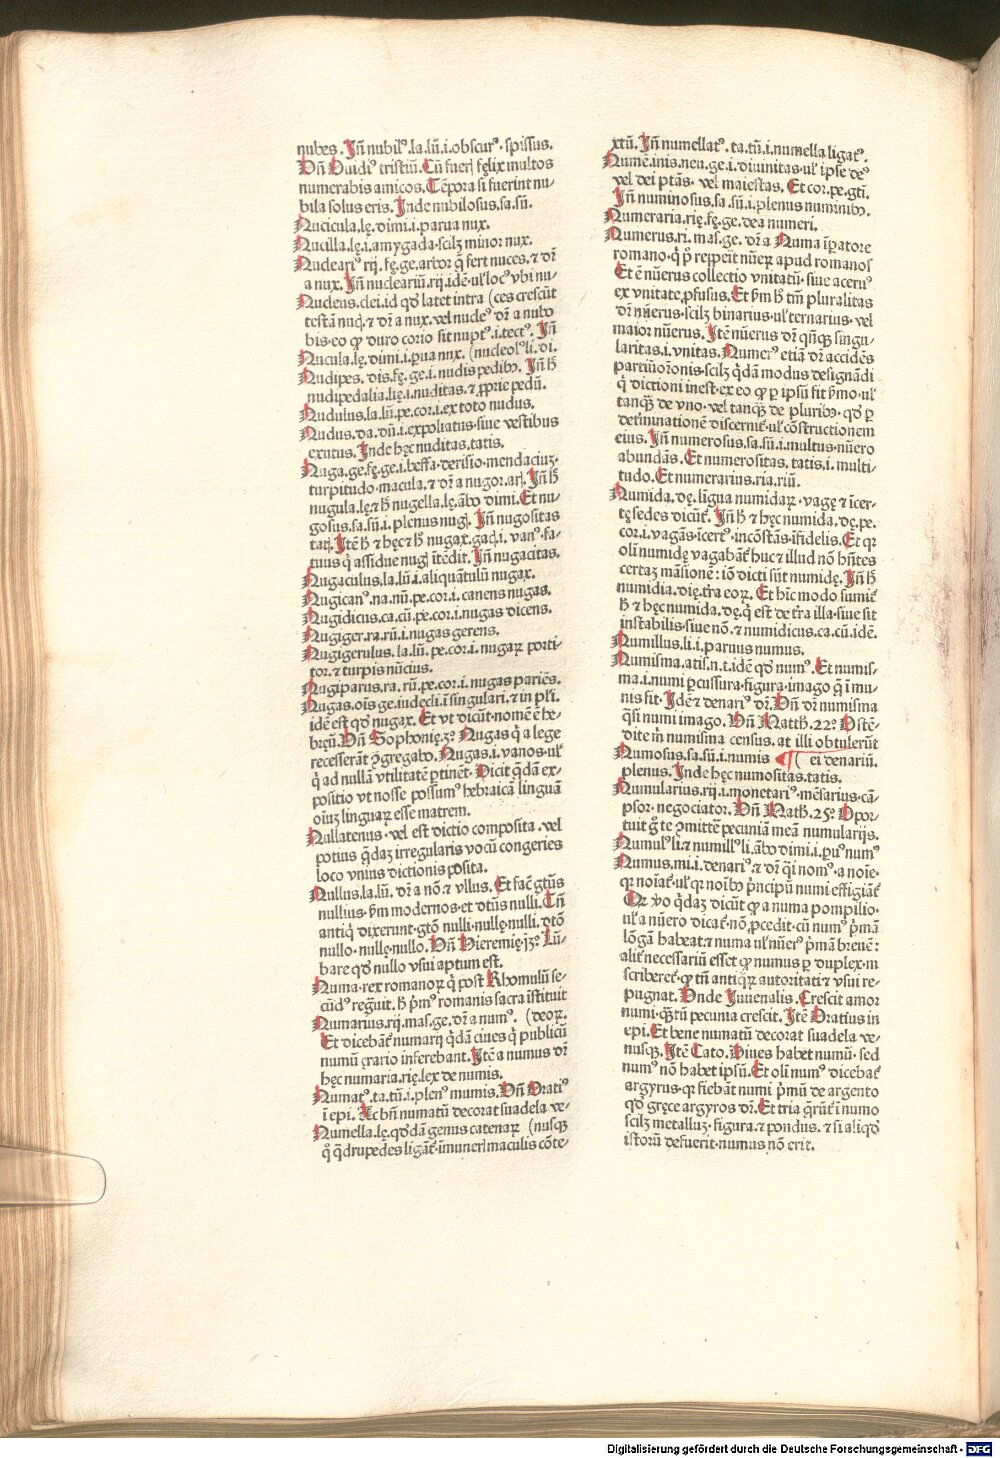 nubes. Iñ nubilꝰ.la.lũ.i.obscurꝰ. spissus.
Vñ Ouidiꝰ tristiũ. Cũ fuerꝭ fęlix multos
numerabis amicos. Tẽpora si fuerint nu-
bila solus eris. Inde nubilosus.sa.sũ.
Nucicula.lę.dimi.i.parua nux.
Nucilla.lę.i.amygada.scilꝫ minor nux.
Nucleariꝰ rij.fę.ge.arbor q̃ fert nuces.⁊ dr̃
a nux. Iñ nucleariũ.rij.idẽ.ul̕ locꝰ vbi nu-
Nucleus.clei.id qđ latet intra (ces crescũt
testã nucꝭ.⁊ dr̃ a nux.vel nudeꝰ dr̃ a nubo
bis.eo ꝙ duro corio sit nuptꝰ.i.tectꝰ. Iñ
Nucula.lę.dimi.i.ꝑua nux. (nucleolꝰ li.di.
Nudipes.dis.fę.ge.i.nudis pedibꝰ. Iñ h̄
nudipedalia.lię.i.nuditas.⁊ ꝓprie pedũ.
Nudulus.la.lũ.pe.cor.i.ex toto nudus.
Nudus.da.dũ.i.expoliatus.siue vestibus
exutus. Inde hęc nuditas.tatis.
Nuga.gę.fę.ge.i.beffa.derisio.mendaciuꝫ.
turpitudo.macula.⁊ dr̃ a nugor.arꝭ. Iñ h̄
nugula.lę.⁊ h̄ nugella.lę.ãbo dimi. Et nu-
gosus.sa.sũ.i.plenus nugꝭ. Iñ nugositas
tatꝭ. Itẽ h̄ ⁊ hęc ⁊ h̄ nugax.gacꝭ.i.vanꝰ.fa-
tuus q̓ assidue nugꝭ ĩtẽdit. Iñ nugacitas.
Nugaculus.la.lũ.i.aliquãtulũ nugax.
Nugicanꝰ.na.nũ.pe.cor.i.canens nugas.
Nugidicus.ca.cũ.pe.cor.i.nugas dicens.
Nugiger.ra.rũ.i.nugas gerens.
Nugigerulus.la.lũ.pe.cor.i.nugaꝝ porti-
tor.⁊ turpis nũcius.
Nugiparus.ra.rũ.pe.cor.i.nugas pariẽs.
Nugas.oĩs ge.iudecli.ĩ singulari.⁊ in pl̕i.
idẽ est qđ nugax. Et vt dicũt nomẽ ẽ he-
bręũ. Vñ Sophonię.3ꝰ Nugas q̓ a lege
recesserãt ꝯgregabo. Nugas.i.vanos.ul̕
q̓ ad nullã vtilitatẽ ꝑtinẽt. Dicit q̓dã ex-
positio vt nosse possumꝰ hebraicã linguã
oĩuꝫ linguaꝝ esse matrem.
Nullatenus.vel est dictio composita.vel
potius q̃daꝫ irregularis vocũ congeries
loco vnius dictionis posita.
Nullus.la.lũ. dr̃ a nõ.⁊ vllus. Et facẽ gtũs
nullius.ẜm modernos.et dtũs nulli. Tñ
antiq̓ dixerunt.gtõ nulli.nullę.nulli. dtõ
nullo.nullę.nullo. Vñ Hieremię.13ꝰ Lũ-
bare qđ nullo vsui aptum est.
Numa.rex romanoꝝ q̓ post Rhomulũ se-
cũdꝰ regͣuit. h̄ pͥmꝰ romanis sacra ĩstituit
Numarius.rij.mas.ge.dr̃ a numꝰ. (deoꝝ.
Et dicebãt numarij q̓dã ciues q̓ publicũ
numũ ęrario inferebant. Itẽ a numus dr̃
hęc numaria.rię.lex de numis.
Numatꝰ.ta.tũ.i.plenꝰ mumis. Vñ Oratiꝰ
ĩ epi. Ac bñ numatũ decorat suadela ve-
Numella.lę.qđdã genus catenaꝝ (nusqꝫ
q̊ q̓drupedes ligãt̃.ĩmuneri maculis cõte-
xtũ. Iñ numellatꝰ.ta.tũ.i.numella ligatꝰ.
Numẽ.inis.neu.ge.i.diuinitas.ul̕ ipse deꝰ
vel dei ptãs.vel maiestas. Et cor.pe.gti.
Iñ numinosus.sa.sũ.i.plenus numinibꝰ.
Numeraria.rię.fę.ge.dea numeri.
Numerus.ri.mas.ge. dr̃ a Numa ĩperatore
romano.q̓ pͥ repperit nũeꝝ apud romanos
Et ẽ nũerus collectio vnitatũ.siue aceruꝰ
ex vnitate ꝓfusus. Et ẜm h̄ tm̃ pluralitas
dr̃ nũerus.scilꝫ binarius.ul̕ ternarius.vel
maior nũerus. Itẽ nũerus dr̃ qñqꝫ singu-
laritas.i.vnitas. Numerꝰ etiã dr̃ accidẽs
partiũ oronis.scilꝫ q̓dã modus designãdi
q̓ dictioni inest.ex eo ꝙ ꝑ ipsũ fit ẜmo.ul̕
tanqꝫ de vno.vel tanqꝫ de pluribꝰ.qđ ꝑ
determinatione discernit̃.ul̕ cõstructionem
eius. Iñ numerosus.sa.sũ.i.multus.nũero
abundãs. Et numerositas.tatis.i.multi-
tudo. Et numerarius.ria.riũ.
Numida.dę.ligua numidaꝝ.vagę ⁊ ĩcer-
tę sedes dicũt̃. Iñ h̄ ⁊ hęc numida.dę.pe.
cor.i.vagãs.ĩcertꝰ.incõstãs.ĩfidelis. Et qꝛ
olĩ numidę vagabãt̃ huc ⁊ illud nõ hñtes
certaꝫ mãsionẽ: iõ dicti sũt numidę. Iñ h̄
numidia.dię.t̃ra eoꝝ. Et hĩc modo sumit̃
h̄ ⁊ hęc numida.dę.q̓ est de t̃ra illa.siue sit
instabilis.siue nõ.⁊ numidicus.ca.cũ.idẽ.
Numillus.li.i.paruus numus.
Numisma.atis.n.t.idẽ qđ numꝰ. Et numis-
ma.i.numi ꝑcussura.figura.imago q̃ ĩ mu-
nis fit. Idẽ ⁊ denariꝰ dr̃. Vñ dr̃ numisma
q̃si numi imago. Vñ Matth.22ꝰ Ostẽ-
dite m̃ numisma census. at illi obtulerũt
Numosus.sa.sũ.i.numis ¶( ei denariũ.
plenus. Inde hęc numositas.tatis.
Numularius.rij.i.monetariꝰ.mẽsarius.cã-
psor.negociator. Vñ Math.25ꝰ Opor-
tuit g̃ te ꝯmittẽ pecuniã meã numularijs.
Numulꝰ li.⁊ numillꝰ li.ãbo dimi.i.ꝑuꝰ numꝰ
Numus.mi.i.denariꝰ.⁊ dr̃ q̃i nomꝰ.a noĩe.
qꝛ noĩat̃.ul̕ qꝛ noĩbꝰ pͥncipũ numi effigiãt̃
Qꝛ vͦo q̓daꝫ dicũt ꝙ a numa pompilio.
ul̕ a nũero dicat̃.nõ ꝓcedit.cũ numꝰ pͥmã
lõgã habeat.⁊ numa ul̕ nũerꝰ pͥmã breuẽ:
alit̃ necessariũ esset ꝙ numus ꝑ duplex.m
scriberet̃.ꝙ tñ antiqꝝ autoritati ⁊ vsui re-
pugnat. Vnde Iuuenalis. Crescit amor
numi.qͣꝫtũ pecunia crescit. Itẽ Oratius in
epi. Et bene numatũ decorat suadela ve-
nusqꝫ. Itẽ Cato. Diues habet numũ.sed
numꝰ nõ habet ipsũ. Et olĩ numꝰ dicebat̃
argyrus.qꝛ fiebãt numi pͥmũ de argento
qđ gręce argyros dr̃. Et tria q̃rũt̃ ĩ numo
scilꝫ metalluꝫ.figura.⁊ pondus.⁊ si aliqđ
istorũ defuerit.numus nõ erit.
Digitalisierung gefördert durch die Deutsche Forschungsgemeinschaft - DFG